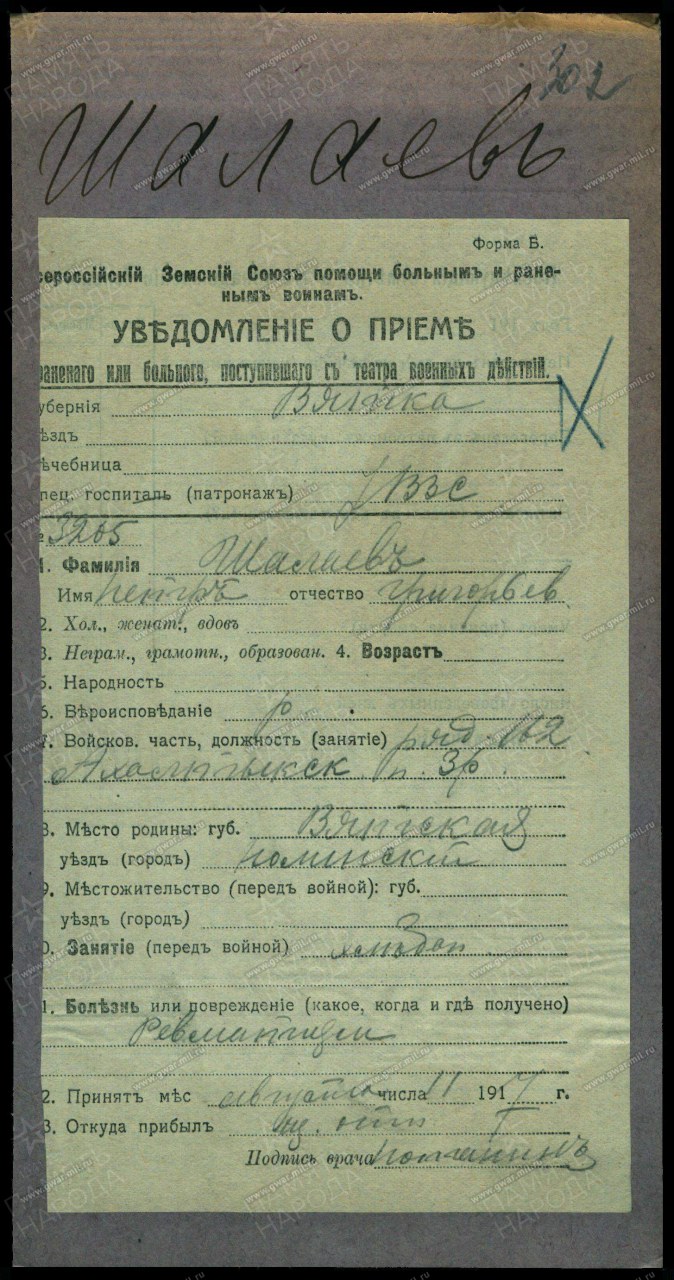 302
Шалаевъ
Форма Б.
сероссійскій Земскій Союзъ помощи больнымъ и ране-
нымъ воинамъ.
УВѢДОМЛЕНІЕ О ПРІЕМѢ
раненаго или больного, поступившаго съ театра военныхъ дѣйствій.
уберніи Вятка
ѣздъ
ѣчебница
пец. госпиталь (патронажъ) ВЗС
№ 3265
1. Фамилія Шалаевъ
Имя Петръ отчество Григорьев.
2. Хол., женат., вдовъ
3. Неграм., грамотн., образован. 4. Возрастъ
5. Народность
6. Вѣроисповѣданіе р
7. Войсков. часть, должность (занятіе) ряд. 162
Ахалцыхск п. 3р.
8. Мѣсто родины: губ. Вятская
уѣздъ (городъ)
9. Мѣстожительство (передъ войной): губ.
уѣздъ (городъ)
0. Занятіе (передъ войной) хлѣбоп
1. Болѣзнь или поврежденіе (какое, когда и гдѣ получено)
Ревматизм
2. Принятъ мѣс августа числа 11 1917 г.
3. Откуда прибылъ
Подпись врача
ПАМЯТЬ НАРОДА
www.gwar.mil.ru